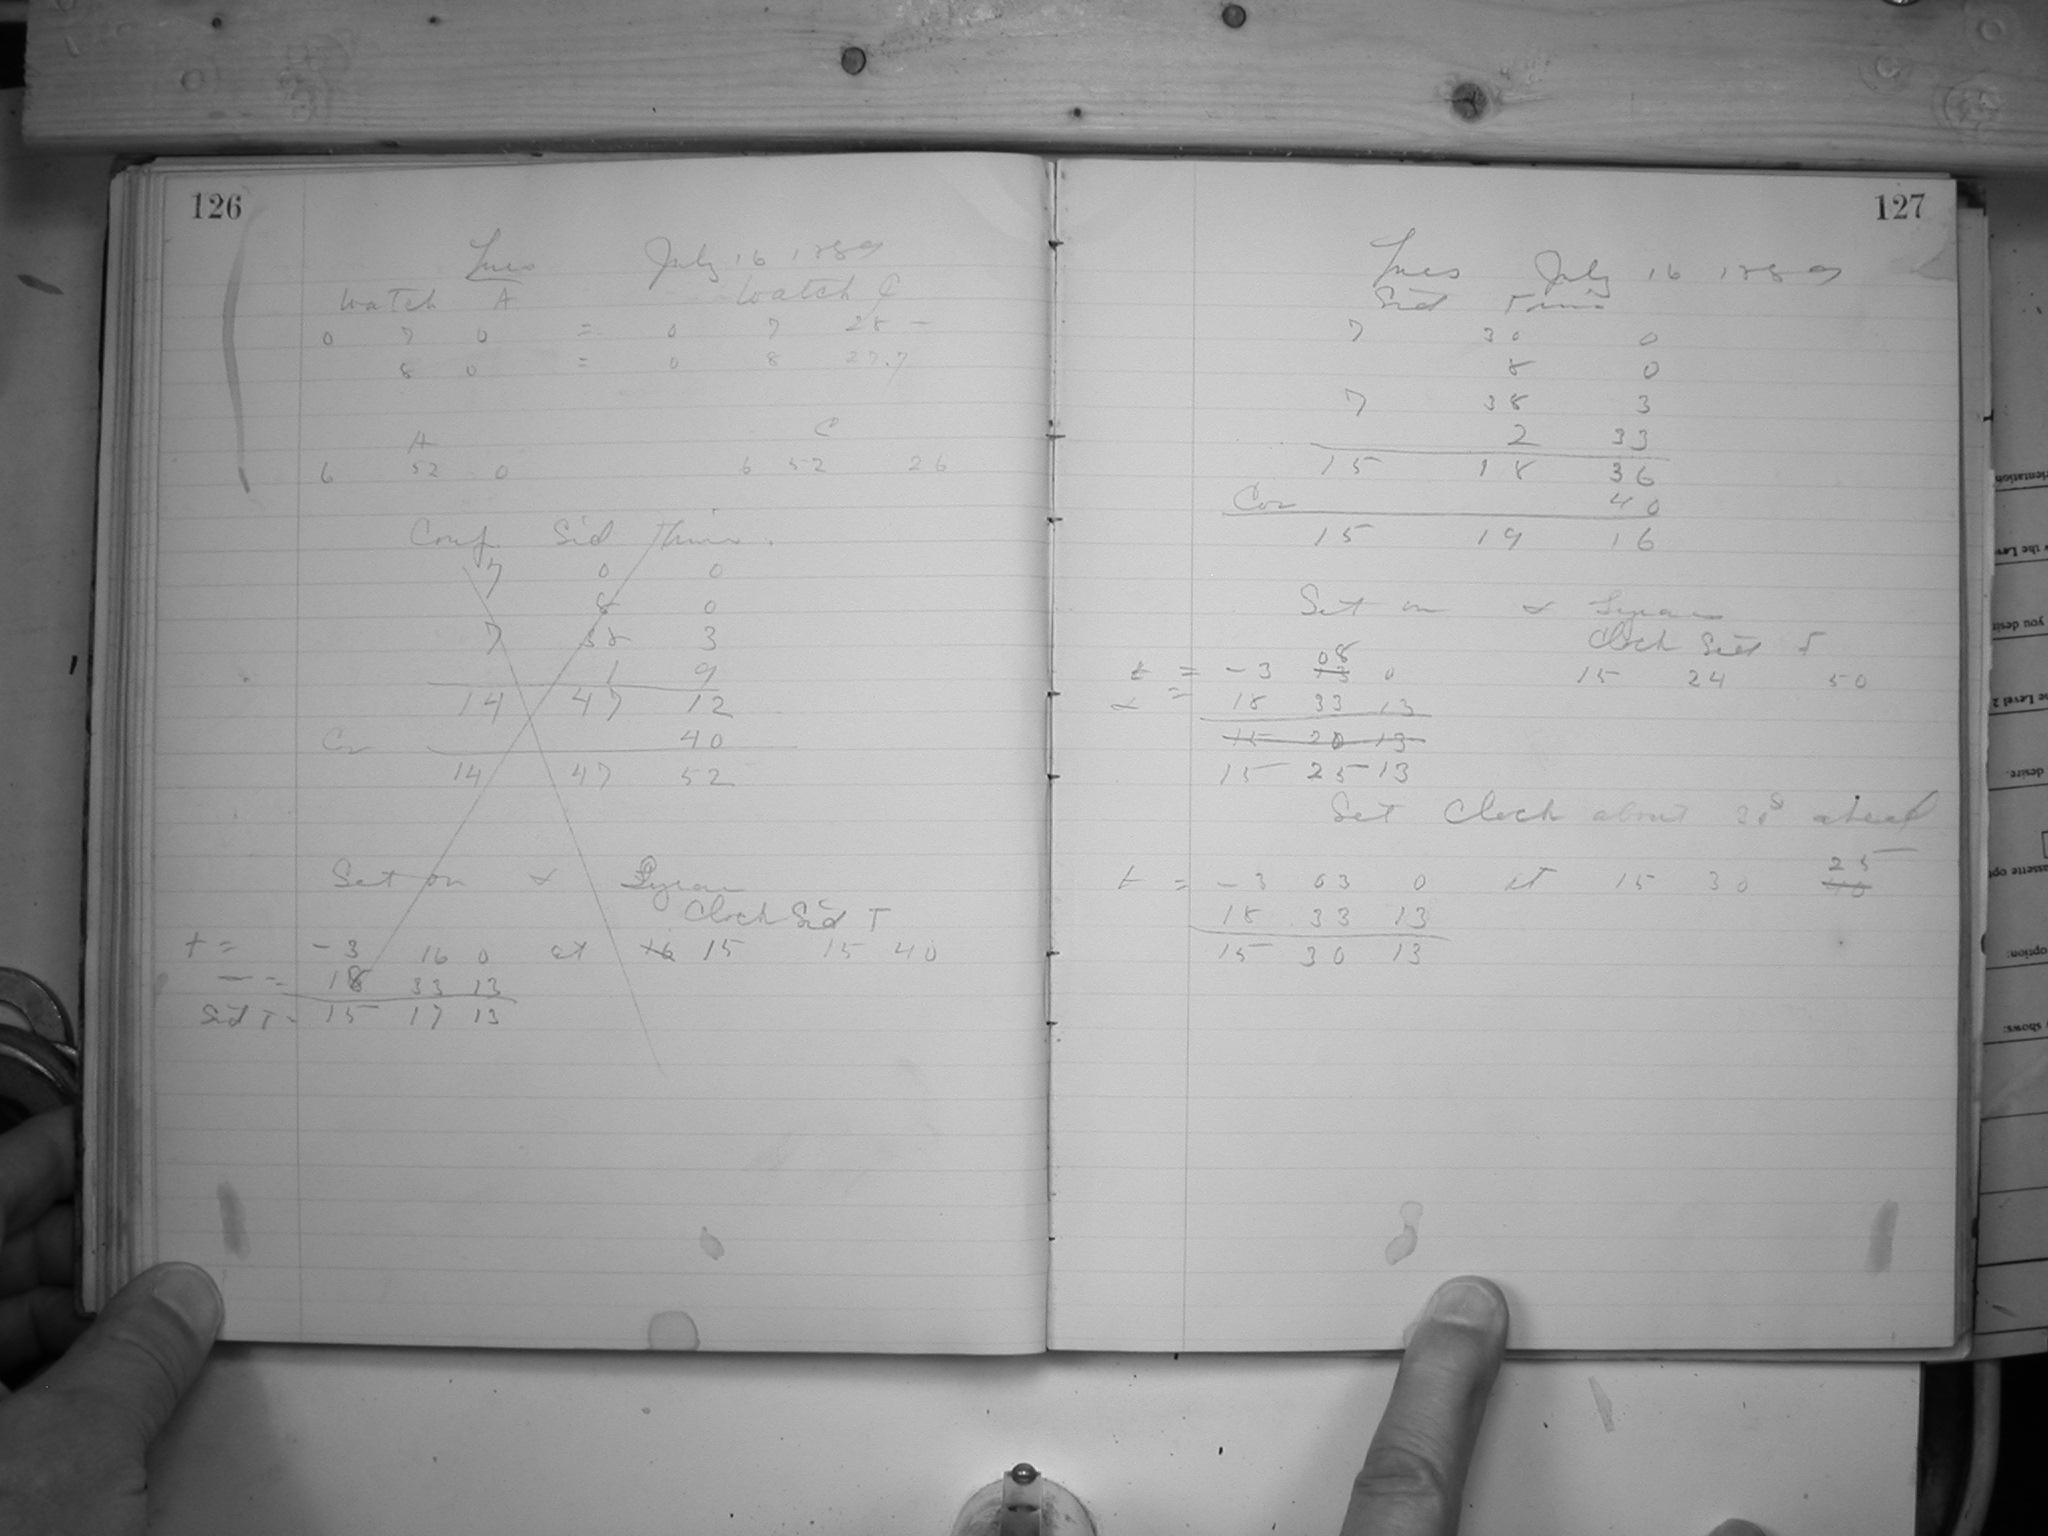 126
Tues July 16 1889
Watch A Watch C
0 7 0 = 0 7 28 -
8 0 = 0 8 27.7
A C
6 52 0 6 52 26
Comp. Sid Time.
7 0 0
8 0
7 38 3
1 9
14 47 12
Cor 40
14 47 52
Set on α Lyrae
Clock Sid T
t = -3 16 0 at 16 15 15 40
= 18 33 13
Sid T = 15 17 13
127
Tues July 16 1889
Sid Time
7 30 0
8 0
7 38 3
2 33
15 18 36
Cor 40
15 19 16
Set on α Lyrae
Clock Sid T
08
t = -3 13 0 15 24 50
α = 18 33 13
15 20 13
15 25 13
Set Clock about 30s ahead
25
t = -3 03 0 at 15 30 40
18 33 13
15 30 13